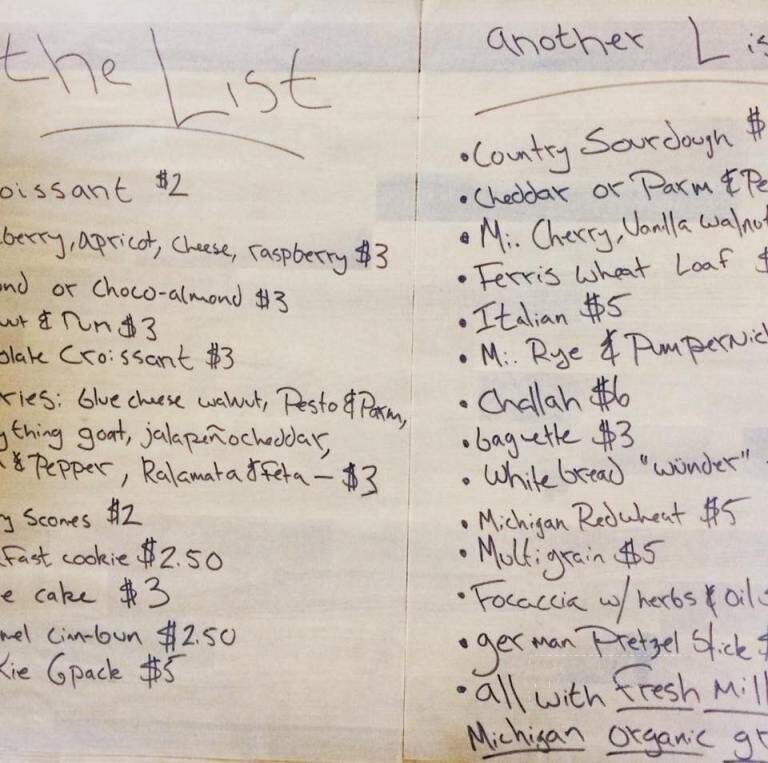 the List
oissant $2
berry, apricot, cheese, raspberry $3
nd or Choco-almond $3
nut & $3
olate Croissant $3
ries: blue cheese walnut, Pesto & Parm,
ything goat, jalapeño cheddar,
& Pepper, Kalamata & feta - $3
y Scones $2
fast cookie $2.50
e cake $3
mel Cin-bun $2.50
kie 6pack $5
another Lis
• Country Sourdough $
• Cheddar or Parm & Pe
• Mi. Cherry, Vanilla walnut
• Ferris wheat Loaf $
• Italian $5
• Mi. Rye & Pumpernick
• Challah $6
• baguette $3
• White bread "wünder"
• Michigan Redwheat $5
• Multigrain $5
• Focaccia w/ herbs & oil
• german Pretzel Stick $
• all with fresh Mill
Michigan Organic gr